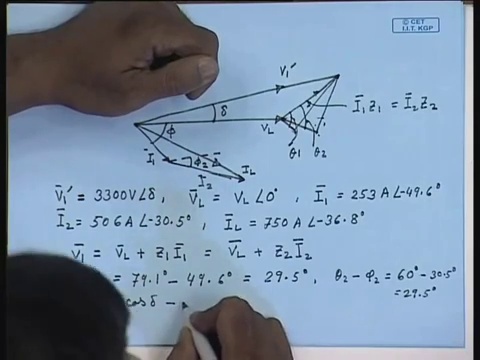 © CET
I.I.T. KGP
V₁'
δ
V_L
Ī₁Z₁ = Ī₂Z₂
φ
θ₁ θ₂
Ī₁
φ₂
Ī₂
I_L
V̄₁' = 3300V∠δ, V̄_L = V_L∠0°, Ī₁ = 253 A∠-49.6°
Ī₂ = 506 A∠-30.5°, Ī_L = 750 A∠-36.8°
V̄₁ = V̄_L + Z₁Ī₁ = V̄_L + Z₂Ī₂
= 79.1° - 49.6° = 29.5°, θ₂ - φ₂ = 60° - 30.5°
= 29.5°
cosδ -